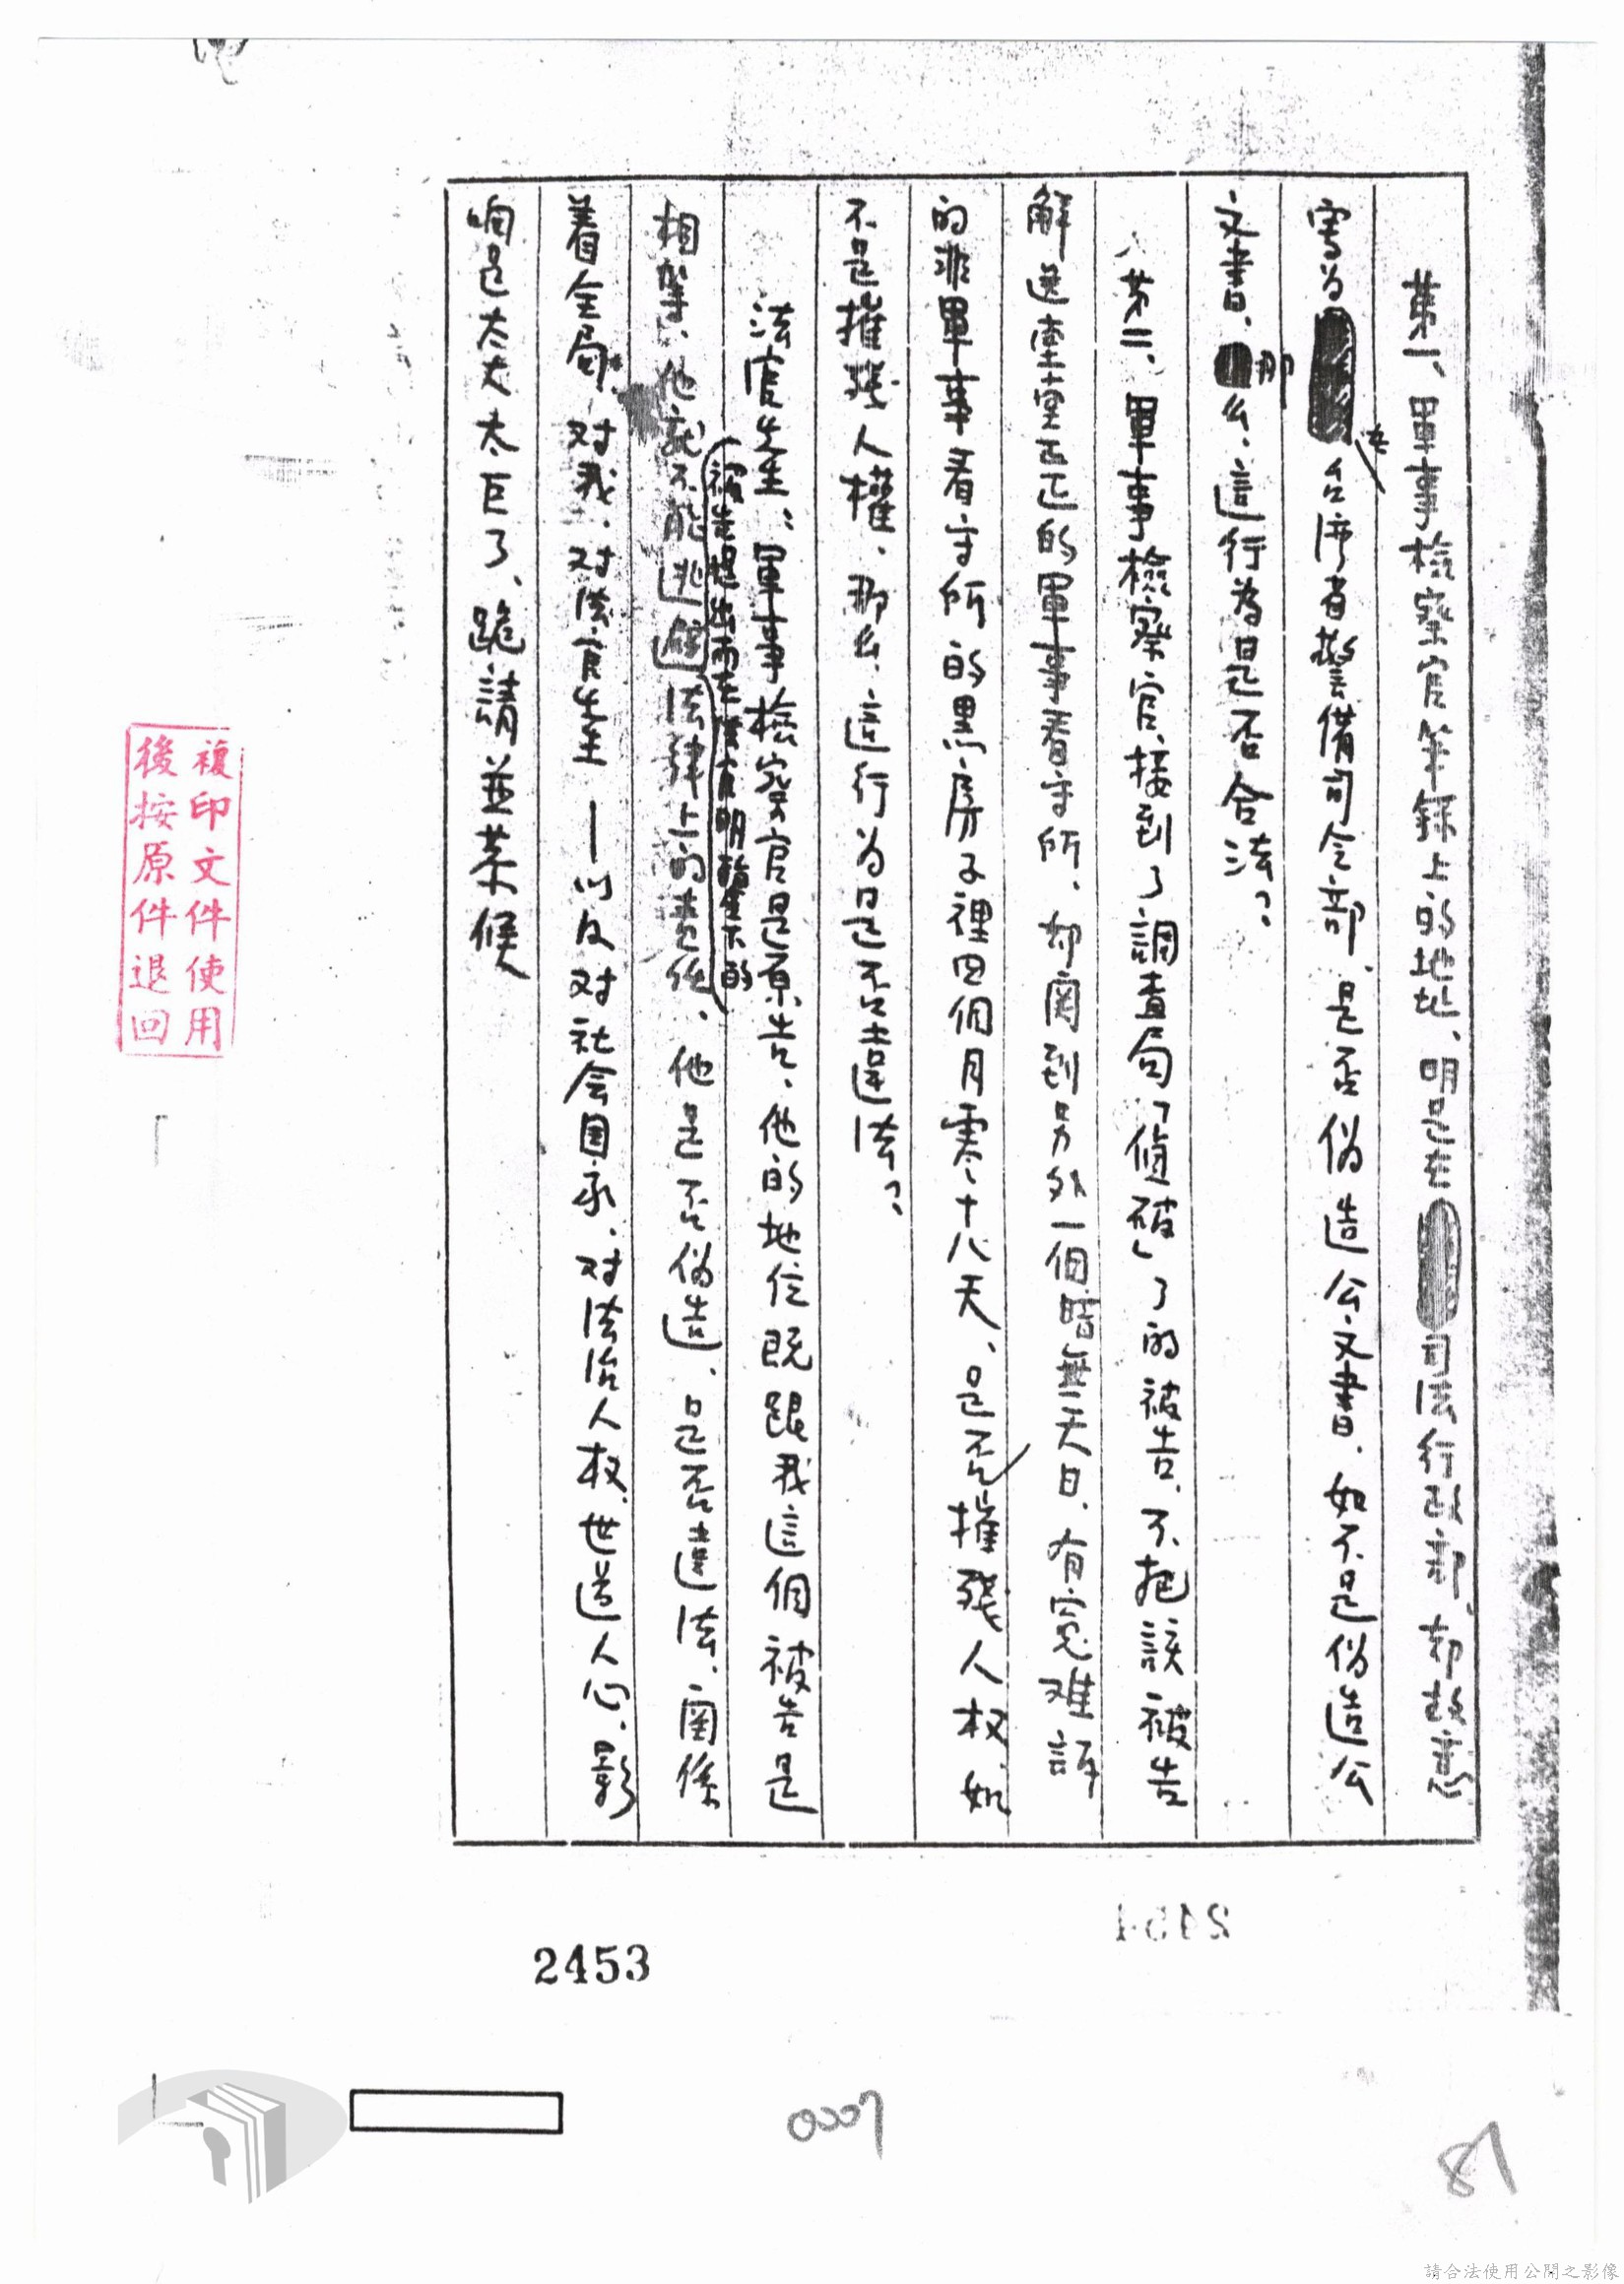 第一、軍事檢察官筆錄上的地址、明是在司法行政部、却故意
寫為台灣省警備司令部、是否偽造公文書、如不是偽造公
文書、那么、這行為是否合法？、
第二、軍事檢察官、接到了調查局「偵破」了的被告、不把該被告
解送堂堂正正的軍事看守所、却関到另外一個暗無天日、有冤难訴
的非軍事看守所的黑房子裡四個月零十八天、是否摧殘人权、如
不是摧殘人權、那么、這行为是否違法？、
法官先生：軍事檢察官是原告、他的地位既跟我這個被告是
被告提出而在法官明指隻下的
相等、他就不能逃避法律上的責任、他是否偽造、是否違法、関係
着全局、对我、对法官先生——以及对社会国家、对法治人权、世道人心、影
响是太大太大巨了、跪請並恭候
複印文件使用
後按原件退回
2454
2453
0007
87
請合法使用公開之影像